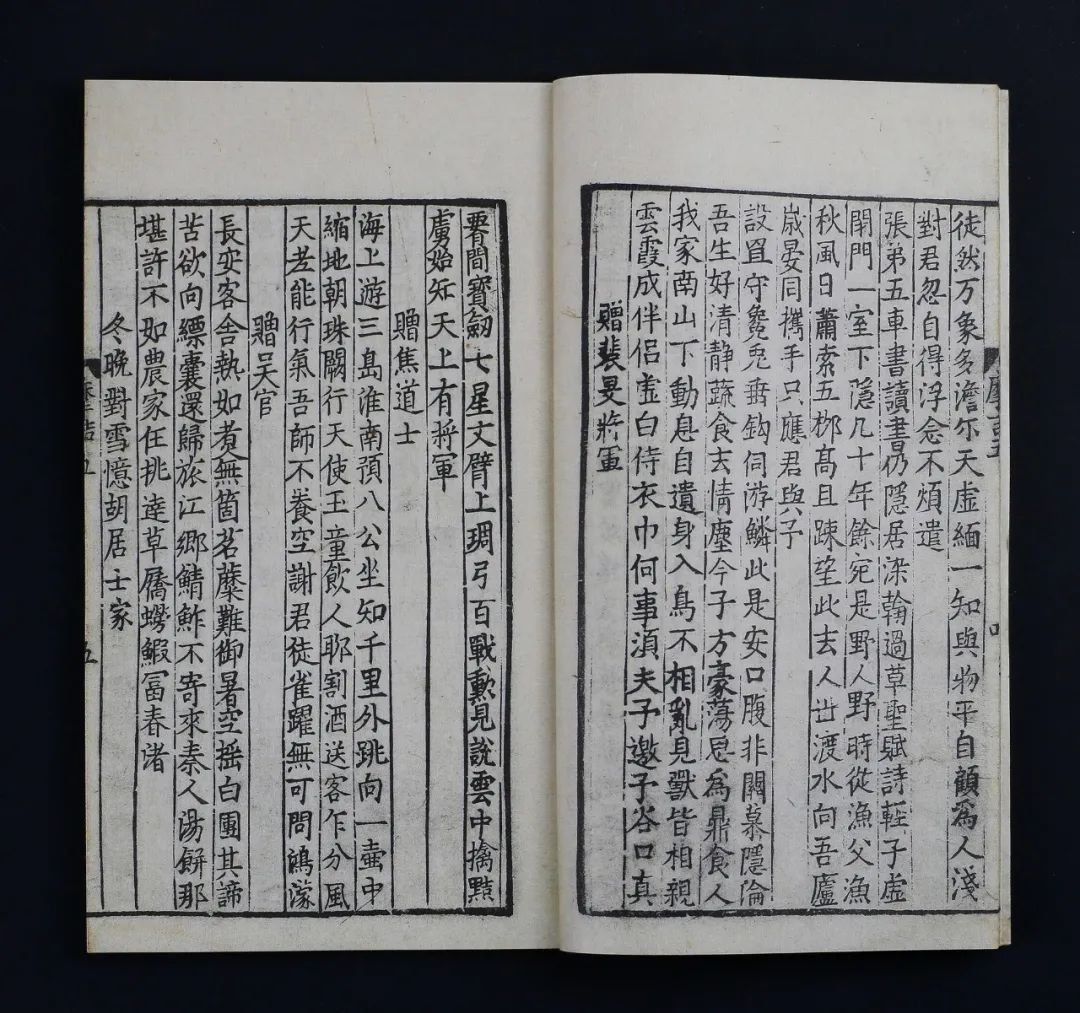 徒然万象多澹尓天虚緬一知與物平自顧為人淺
對君忽自得浮念不煩遣
張弟五車書讀書仍隱居染翰過草聖賦詩輊子虚
閉門一室下隱几十年餘宛是野人野時從漁父漁
秋風日蕭索五柳髙且踈望此去人世渡水向吾廬
歳晏同攜手只應君與子
設罝守毚兎垂鈎伺游鱗此是安口腹非關慕隱淪
吾生好清静蔬食去情塵今子方豪蕩思為鼎食人
我家南山下動息自遺身入鳥不相亂見獸皆相親
雲霞成伴侶虚白侍衣巾何事湏夫子邀子谷口真
贈裴旻將軍
腰間寳劒七星文臂上琱弓百戰勲見說雲中擒黠
虜始知天上有將軍
贈焦道士
海上游三島淮南預八公坐知千里外跳向一壷中
縮地朝珠闕行天使玉童飲人耶割酒送客乍分風
天老能行氣吾師不養空謝君徒雀躍無可問鴻濛
贈吴官
長安客舎熱如煑無箇茗糜難御暑空揺白團其諦
苦欲向縹囊還歸旅江郷鯖鮓不寄來秦人湯餅那
堪許不如農家任挑達草屩撈鰕冨春渚
冬晚對雪憶胡居士家
五